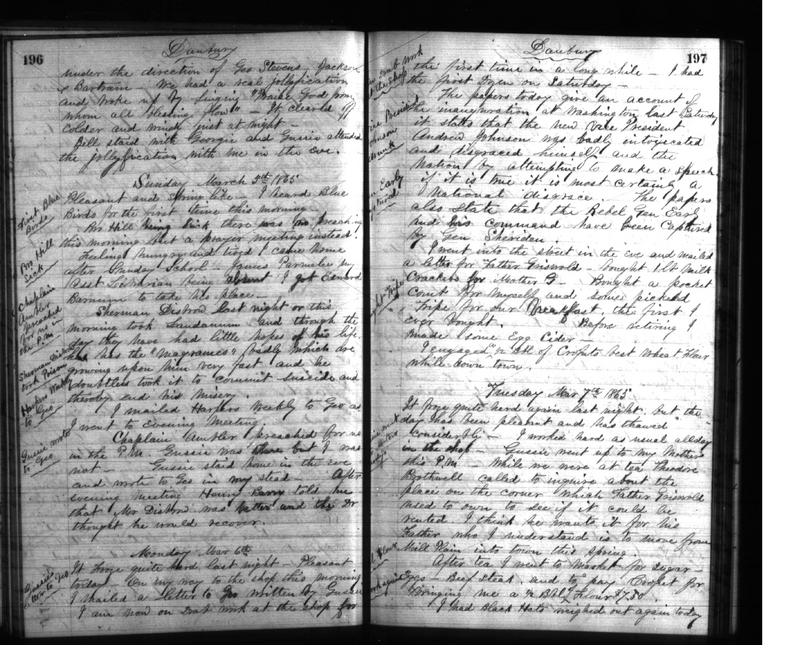 196
Danbury
under the direction of Geo Stevens, Jackson
& Bartram We had a real jollification
and woke up by singing "Praise God from
whom all blessing flow" It cleared off
colder and windy just at night
Bill staid with Georgie and Gussie attended
the jollyfication with me in the eve.
Sunday March 5th 1865
Pleasant and Spring like I heard Blue
Birds for the first time this morning
Bro Hill being Sick there was no preaching
this morning but a prayer meeting instead.
Feeling hungry and tired I came home
after Sunday School James Parmelee my
Asst Librarian being absent I got Edward
Barnum to take his place
Sherman Distrow last night or this
morning took Laudanum and through the
day they have had little hopes of his life.
He has the "magrames" badly which are
growing upon him very fast and he
doubtless took it to commit Suicide and
thereby end his misery
I mailed Harpers Weekly to Geo as
I went to Evening Meeting
Chaplain Ambler preached for us
in the P.M. Gussie was there but I was
not Gussie staid home in the eve
and wrote to Geo in my stead After
evening meeting Henry Barry told me
that Mr Distrow was better and the Dr
thought he would recover.
Monday Mar 6th
It froze quite hard last night Pleasant
today On my way to the shop this morning
I mailed a letter to Geo written by Gussie
I am now on Drab work at the shop for
First Blue Birds
Bro Hill Sick
Chaplain Ambler preached for us in the P.M.
Sherman Distrow took Poison
Harpers Weekly to Geo
Gussie wrote to Geo
Gussie's letter to Geo
197
Danbury
the first time in a long while I had
the first Dozen on Saturday
The papers today give an account of
the inauguration at Washington last Saturday
it states that the new Vice President
Andrew Johnson was badly intoxicated
and disgraced himself and the
Nation by attempting to make a speech
if it is true it is most certainly a
National disgrace. The papers
also State that the Rebel Gen Early
and his command have been Captured
by Gen Sheriden
I went into the street in the eve and mailed
a letter for Father Griswold bought 1 lb Milk
Crackers for Mother G. Bought a pocket
Comb for myself and some pickeld
tripe for our Breakfast, the first I
ever bought. Before retiring I
made some Egg Cider
I engaged ½ bbl of Crofuts best wheat Flour
while down town.
Tuesday Mar 7th 1865
It froze quite hard again last night, but the
day has been pleasant and has thawed
considerably I worked hard as usual all day
in the shop Gussie went up to my Mothers
this P.M. While we were at tea Theodore
Bothwell called to inquire about the
place on the corner which Father Griswold
used to own to see if it could be
rented I think he wants it for his
Father who I understand is to move from
Mill Plain into town this Spring.
After tea I went to Market for Sugar
Eggs Beef Steak and to pay Crofut for
bringing me a ½ Bbl Flour $7.50
I had Black Hats weighed out again today